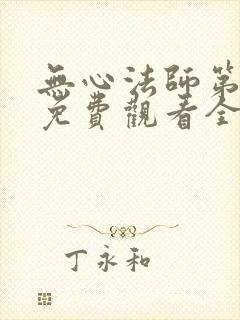 無心法師第
免費觀看全
丁永和